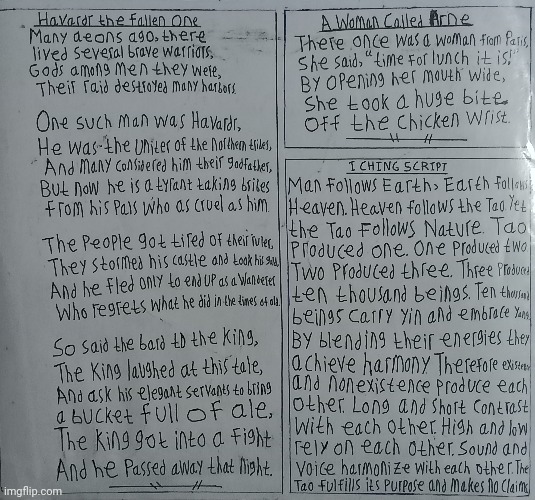 Havardr the fallen One
Many aeons ago, there
lived several brave warriors,
Gods among men they were,
Their raid destroyed many harbors
One such man was Havardr,
He was the Uniter of the Northern tribes,
And many considered him their godfather,
But now he is a tyrant taking bribes
from his Pals who as cruel as him
The People got tired of their ruler,
They stormed his castle and took his
And he fled only to end up as a Wanderer
Who regrets what he did in the times of old.
So said the bard to the King,
The King laughed at this tale,
And ask his elegant servants to bring
a bucket full of ale,
The King got into a fight
And he Passed away that night.
A Woman Called Arne
There once was a woman from Paris,
She said, "time for lunch it is!"
By opening her mouth wide,
She took a huge bite
Off the chicken wrist.
I CHING SCRIPT
Man follows Earth, Earth follows
Heaven. Heaven follows the Tao Yet
the Tao Follows Nature. Tao
Produced one. One Produced two
Two Produced three. Three Produced
ten thousand beings. Ten thousand
beings carry yin and embrace Yang
By blending their energies they
achieve harmony Therefore existence
and nonexistence produce each
other. Long and short Contrast
With each other. High and low
rely on each other. Sound and
Voice harmonize with each other. The
Tao fulfills its purpose and makes no claims.
imgflip.com